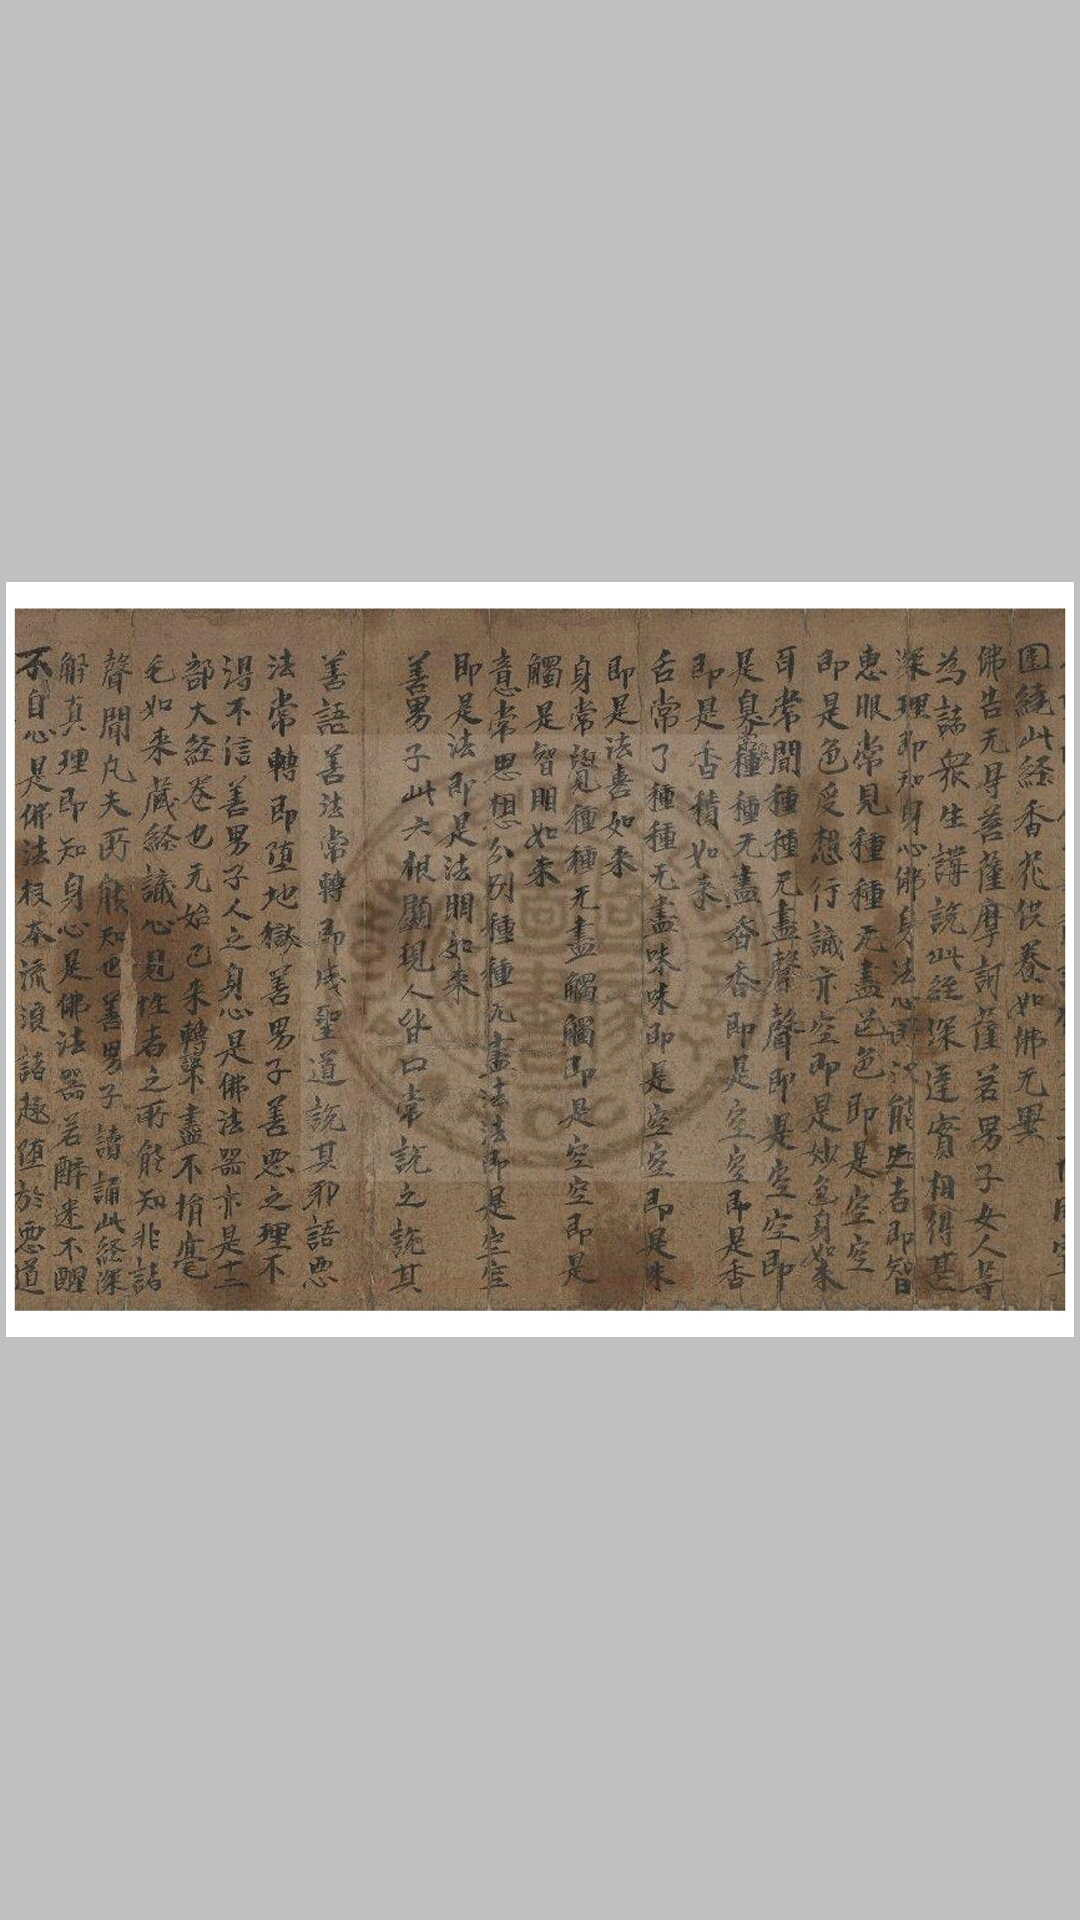 圍繞此経香花供養如佛无異
佛告无尋菩薩摩訶薩若男子女人等
為諸衆生講說此経深達實相得甚
深理即知身心佛身法心能知者即智
惠眼常見種種无盡色色即是空空
即是色受想行識亦空即是妙色身如来
耳常聞種種无盡聲聲即是空空即
是臭種種无盡香香即是空空即是香
即是香積如来
舌常了種種无盡味味即是空空即是味
即是法喜如来
身常覺種種无盡觸觸即是空空即是
觸是智明如来
意常思想分別種種无盡法法即是空空
即是法即是法明如来
善男子此六根顯現人皆口常說之說其
善語善法常轉即成聖道說其邪語悪
法常轉即堕地獄善男子善悪之理不
得不信善男子人之身心是佛法器亦是十二
部大経卷也无始已来轉讀盡不損毫
毛如来蔵経識心見性者之所能知非諸
聲聞凡夫所能知也善男子讀誦此経深
解真理即知身心是佛法器若醉迷不醒
不自心是佛法根本流浪諸趣堕於悪道